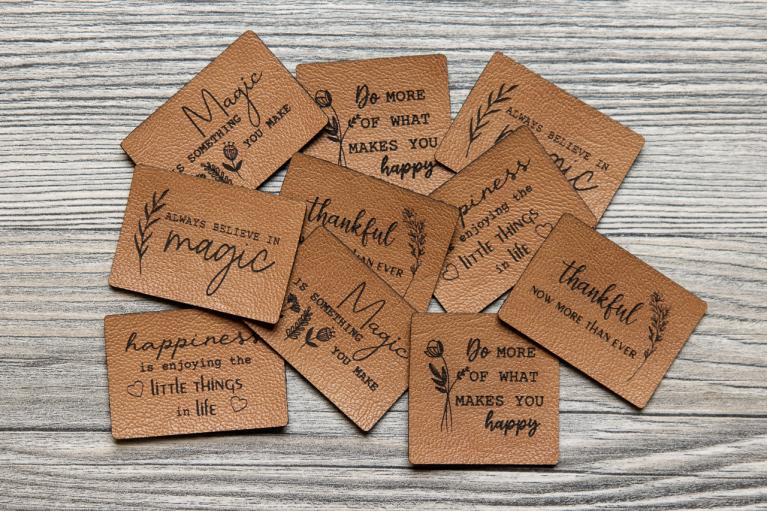 Magic
IS SOMETHING
YOU MAKE
Do MORE
OF WHAT
MAKES YOU
happy
ALWAYS BELIEVE IN
magic
ALWAYS BELIEVE IN
magic
thankful
THAN EVER
happiness
enjoying the
LITTLE THINGS
in LIFE
thankful
NOW MORE THAN EVER
Magic
IS SOMETHING
YOU MAKE
happiness
is enjoying the
LITTLE THINGS
in LIFE
Do MORE
OF WHAT
MAKES YOU
happy